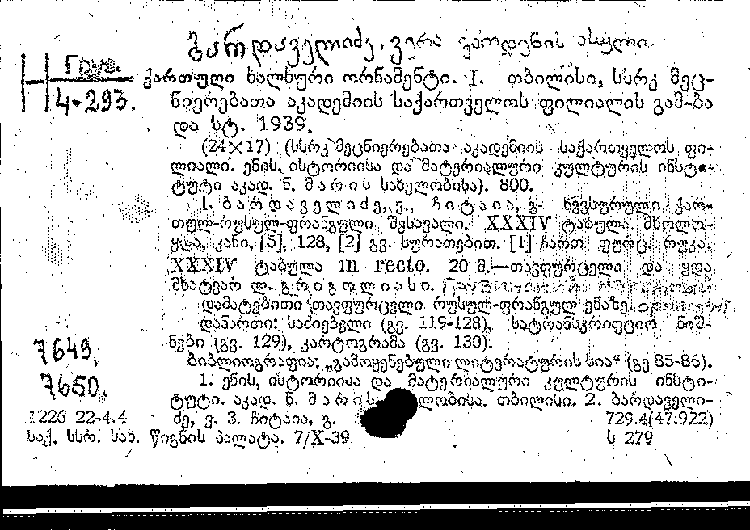 ბარდაველიძე, ვერა ვარდენის ასული.
Груз.
ქართული ხალხური ორნამენტი. I. თბილისი, სსრკ მეც-
4-293.
ნიერებათა აკადემიის საქართველოს ფილიალის გამ-ბა
და სტ. 1939.
(24×17) (სსრკ მეცნიერებათა აკადემიის საქართველოს ფი-
ლიალი. ენის, ისტორიისა და მატერიალური კულტურის ინსტი-
ტუტი აკად. ნ. მარის სახელობისა). 800.
I. ბარდაველიძე, ვ., ჩიტაია, გ. ხევსურული ქარ-
თულ-რუსულ-ფრანგული შესავალი. XXXIV ტაბულა მხოლო-
ყდა, კანი, [5], 128, [2] გვ. სურათებით. [1] ჩართ. ფურც. რუკა,
XXXIV ტაბულა in recto. 20 მ.—თავფურცელი და ყდა
მხატვარ ლ. გრიგოლიასი.
დამატებითი თავფურცელი რუსულ-ფრანგულ ენაზე.
დაპართი: საძიებელი (გვ. 119-128), სატრანსკრიფციო ნიშ-
ნები (გვ. 129), კარტოგრამა (გვ. 130).
ბიბლიოგრაფია: „გამოყენებული ლიტერატურის სია“ (გვ 85-86).
7649.
7650.
1. ენის, ისტორიისა და მატერიალური კულტურის ინსტი-
ტუტი. აკად. ნ. მარის ლობისა. თბილისი. 2. ბარდაველი-
1226 22-4.4 ძე, ვ. 3. ჩიტაია, გ. 729.4(47.922)
საქ. სსრ. სახ. წიგნის პალატა. 7/X-39 ს 279